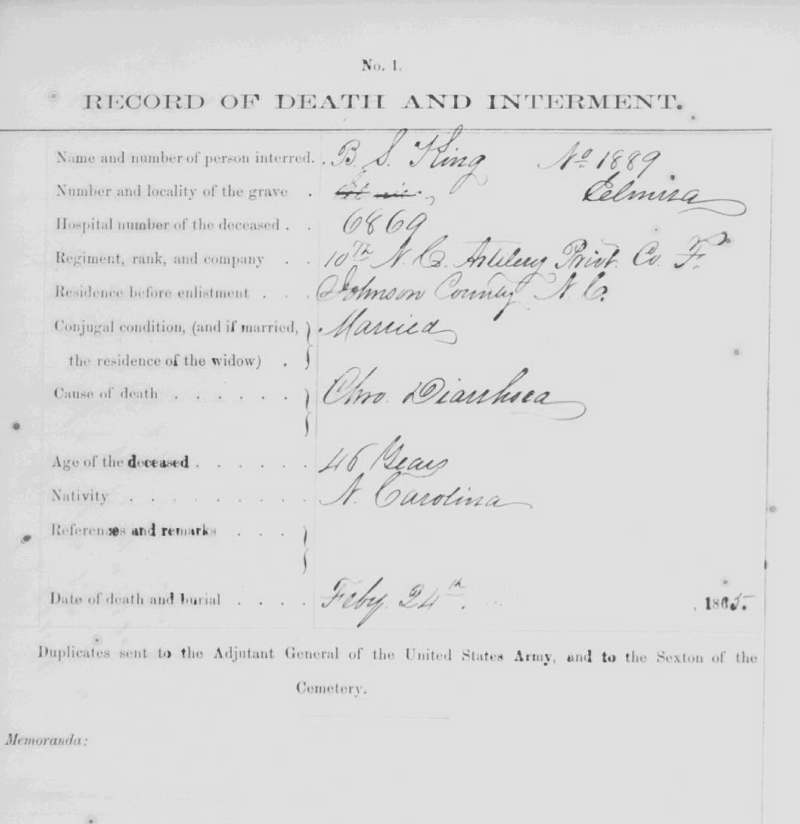 No. 1.
RECORD OF DEATH AND INTERMENT.
Name and number of person interred. . B. S. King No 1889
Number and locality of the grave . Elmira
Hospital number of the deceased . . 6869
Regiment, rank, and company . . 10th N. C. Artilery Privt. Co. F.
Residence before enlistment . . . Johnson County N. C.
Conjugal condition, (and if married, . Married
the residence of the widow) .
Cause of death . . . . . . Chro. Diarrhoea
Age of the deceased . . . . . . 46 Years
Nativity . . . . . . . . . N. Carolina
References and remarks . . .
Date of death and burial . . . . Feby 24th. . 1865.
Duplicates sent to the Adjutant General of the United States Army, and to the Sexton of the
Cemetery.
Memoranda: